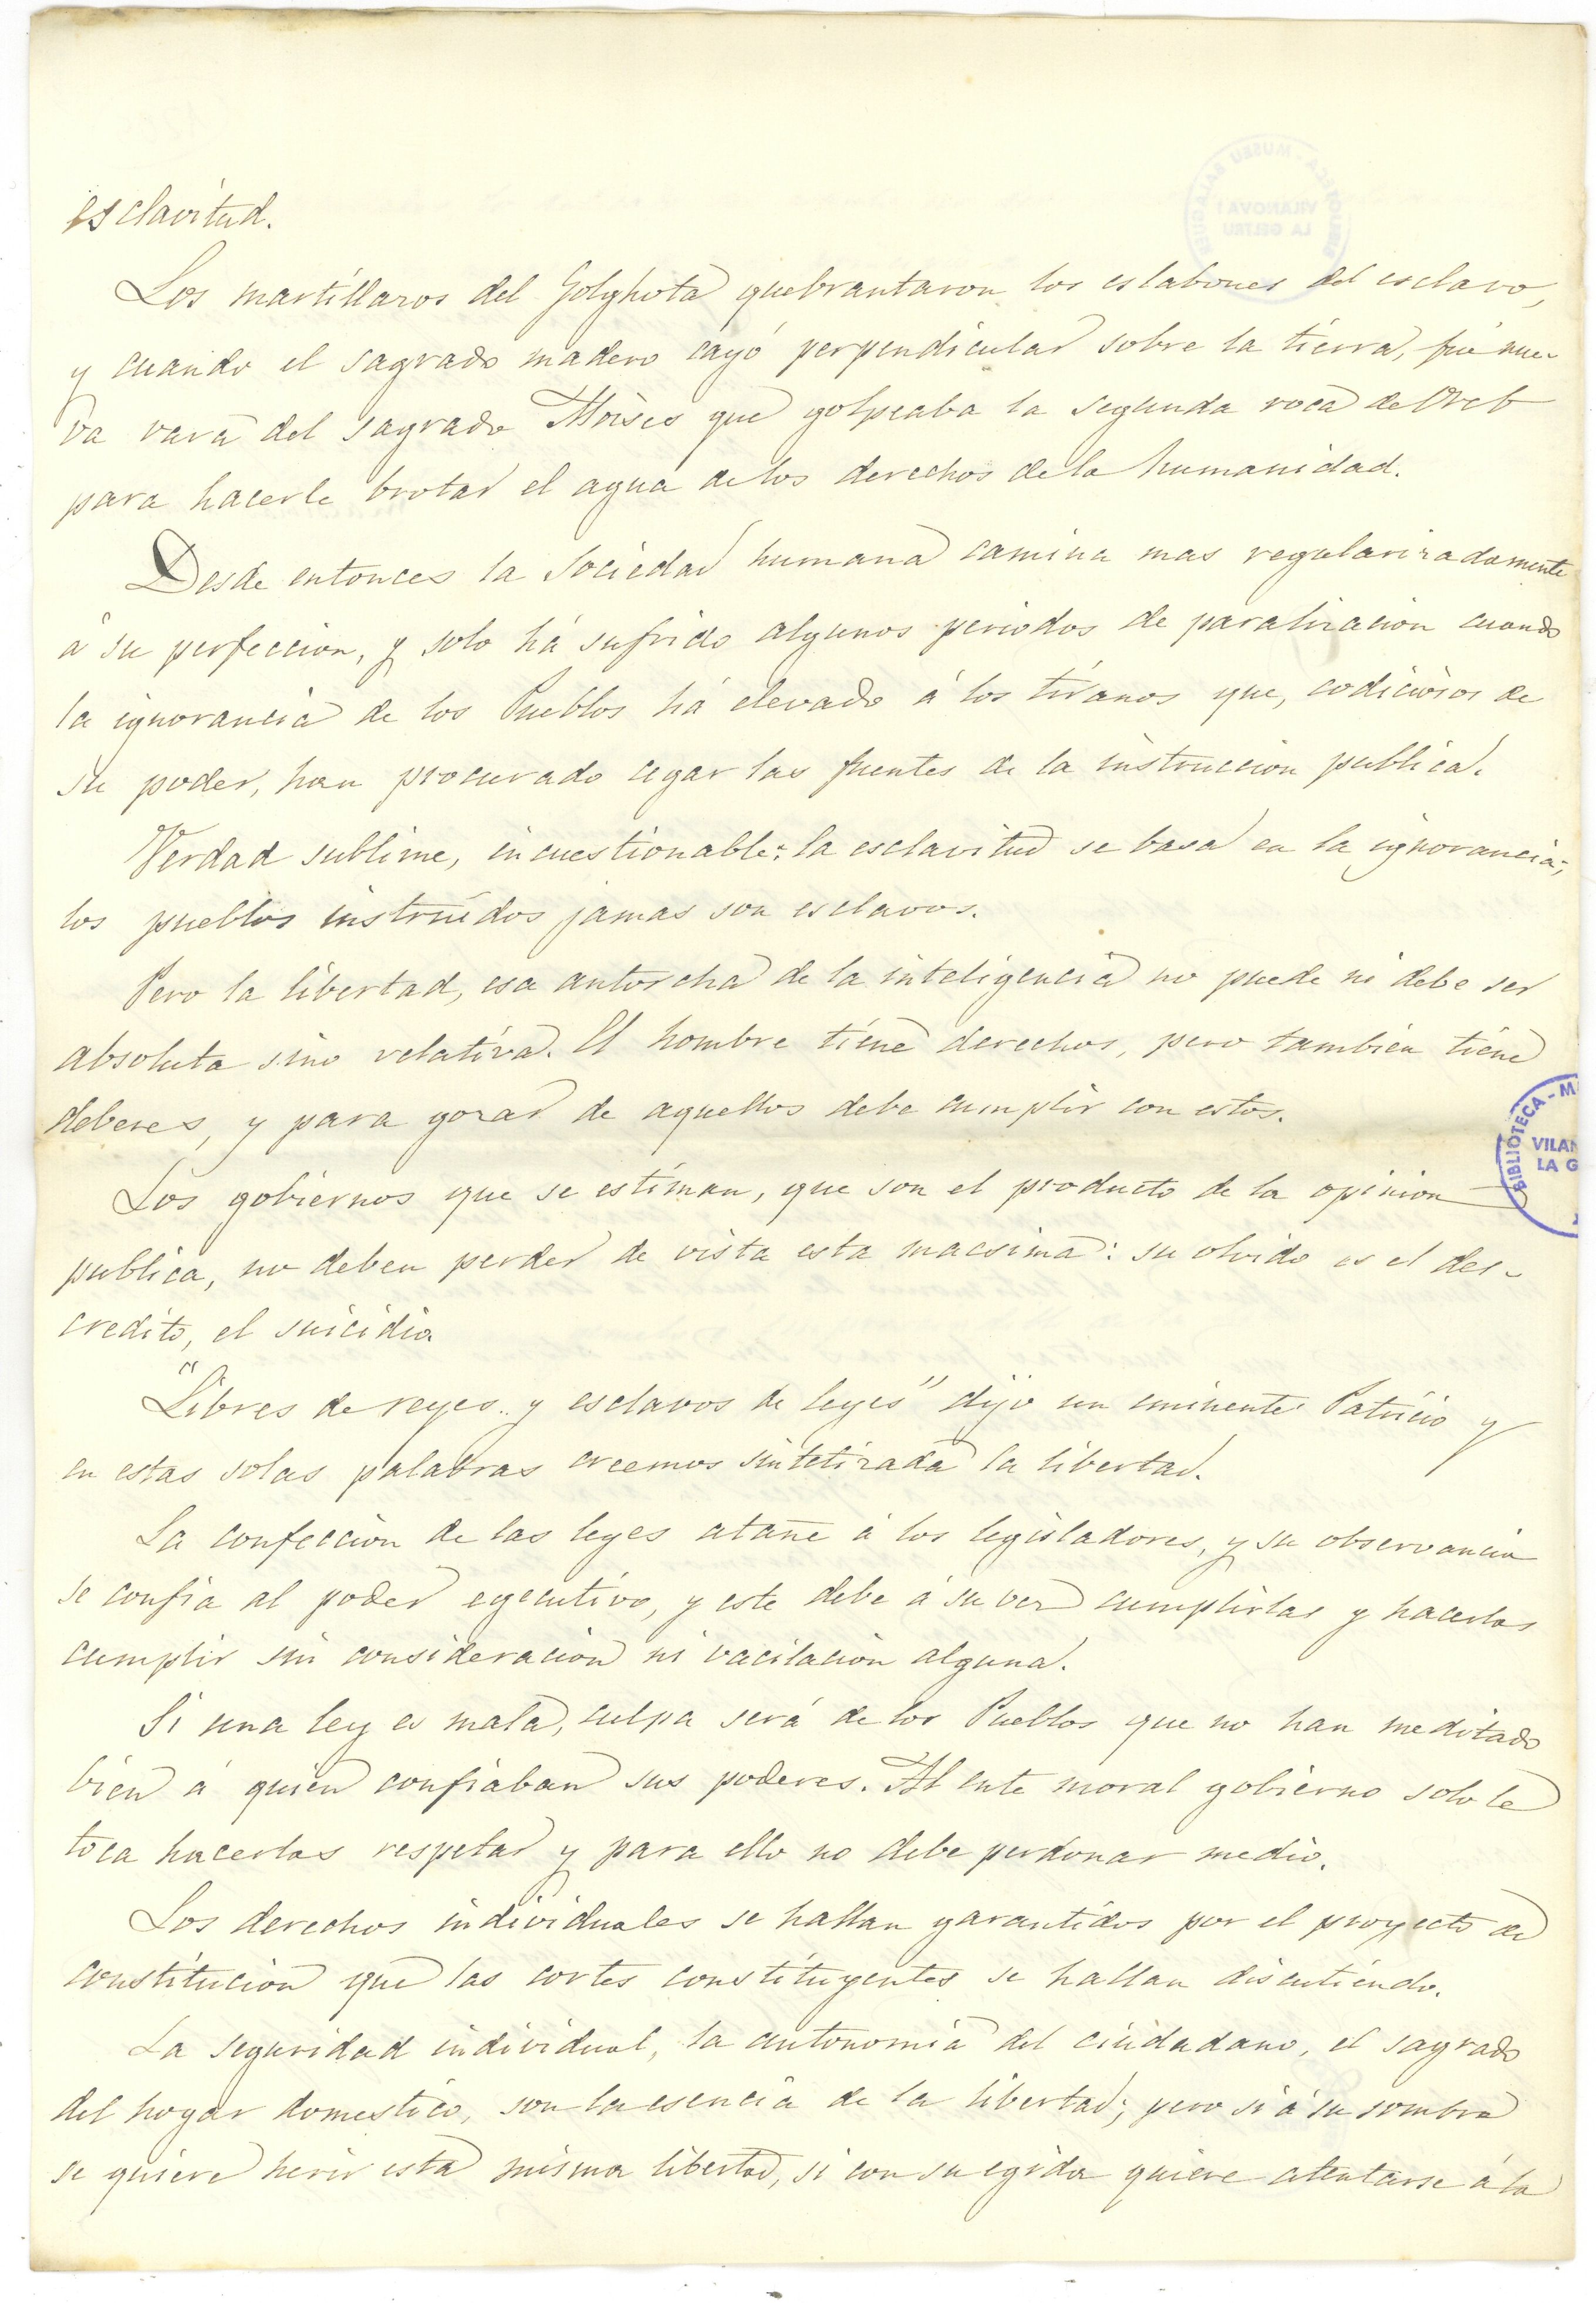 esclavitud.
Los martillazos del Golghota quebrantaron los eslabones del esclavo,
y cuando el sagrado madero cayó perpendicular sobre la tierra, fué nue-
va vara del sagrado Moises que golpeaba la segunda roca de Oreb
para hacerle brotar el agua de los derechos de la humanidad.
Desde entonces la Sociedad humana camina mas regularizadamente
á su perfeccion, y solo há sufrido algunos periodos de paralizacion cuando
la ignorancia de los Pueblos há elevado á los tiranos que, codiciosos de
su poder, han procurado cegar las fuentes de la instruccion publica.
Verdad sublime, incuestionable: la esclavitud se basa en la ignorancia;
los pueblos instruidos jamas son esclavos.
Pero la libertad, esa antorcha de la inteligencia no puede ni debe ser
absoluta sino relativa. El hombre tiene derechos, pero tambien tiene
deberes, y para gozar de aquellos debe cumplir con estos.
Los gobiernos que se estiman, que son el producto de la opinion
publica, no deben perder de vista esta macsima: su olvido es el des-
credito, el suicidio
"Libres de reyes.. y esclavos de leyes" dijo un eminente Patricio y
en estas solas palabras creemos sintetizada la libertad.
La confeccion de las leyes atañe á los legisladores, y su observancia
se confia al poder egecutivo, y este debe á su vez cumplirlas y hacerlas
cumplir sin consideracion ni vacilacion alguna.
Si una ley es mala, culpa será de los Pueblos que no han meditado
bien á quien confiaban sus poderes. Al ente moral gobierno solo le
toca hacerlas respetar y para ello no debe perdonar medio.
Los derechos individuales se hallan garantidos por el proyecto de
constitucion que las cortes constituyentes se hallan discutiendo.
La seguridad individual, la autonomia del ciudadano, el sagrado
del hogar domestico, son la esencia de la libertad; pero si á su sombra
se quiere herir esta misma libertad, si con su egida quiere atentarse á la
BIBLIOTECA - M
VILAN
LA G